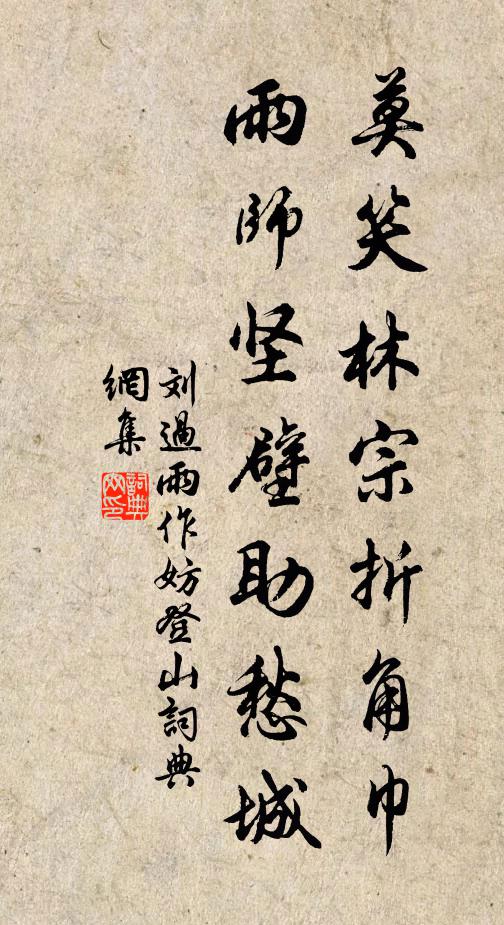 莫笑林宗折角巾
雨師坚壁助愁城
刘過雨作妨登山詞典
網集
詞典
网印